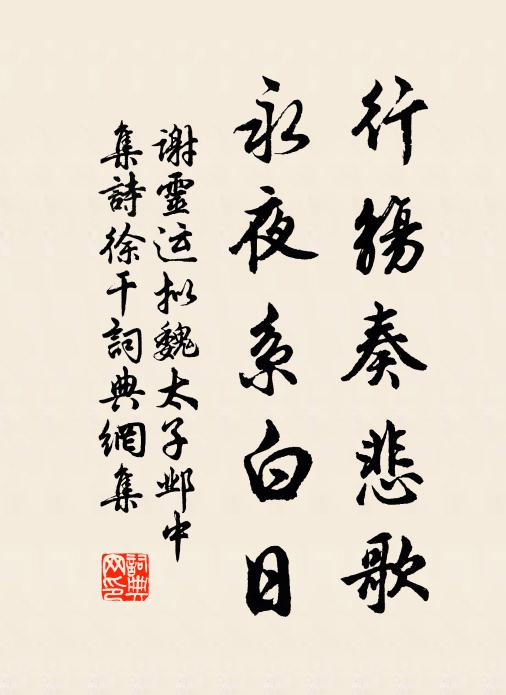 行觴奏悲歌
永夜系白日
谢靈运拟魏太子邺中
集詩徐干詞典網集
詞典
网印